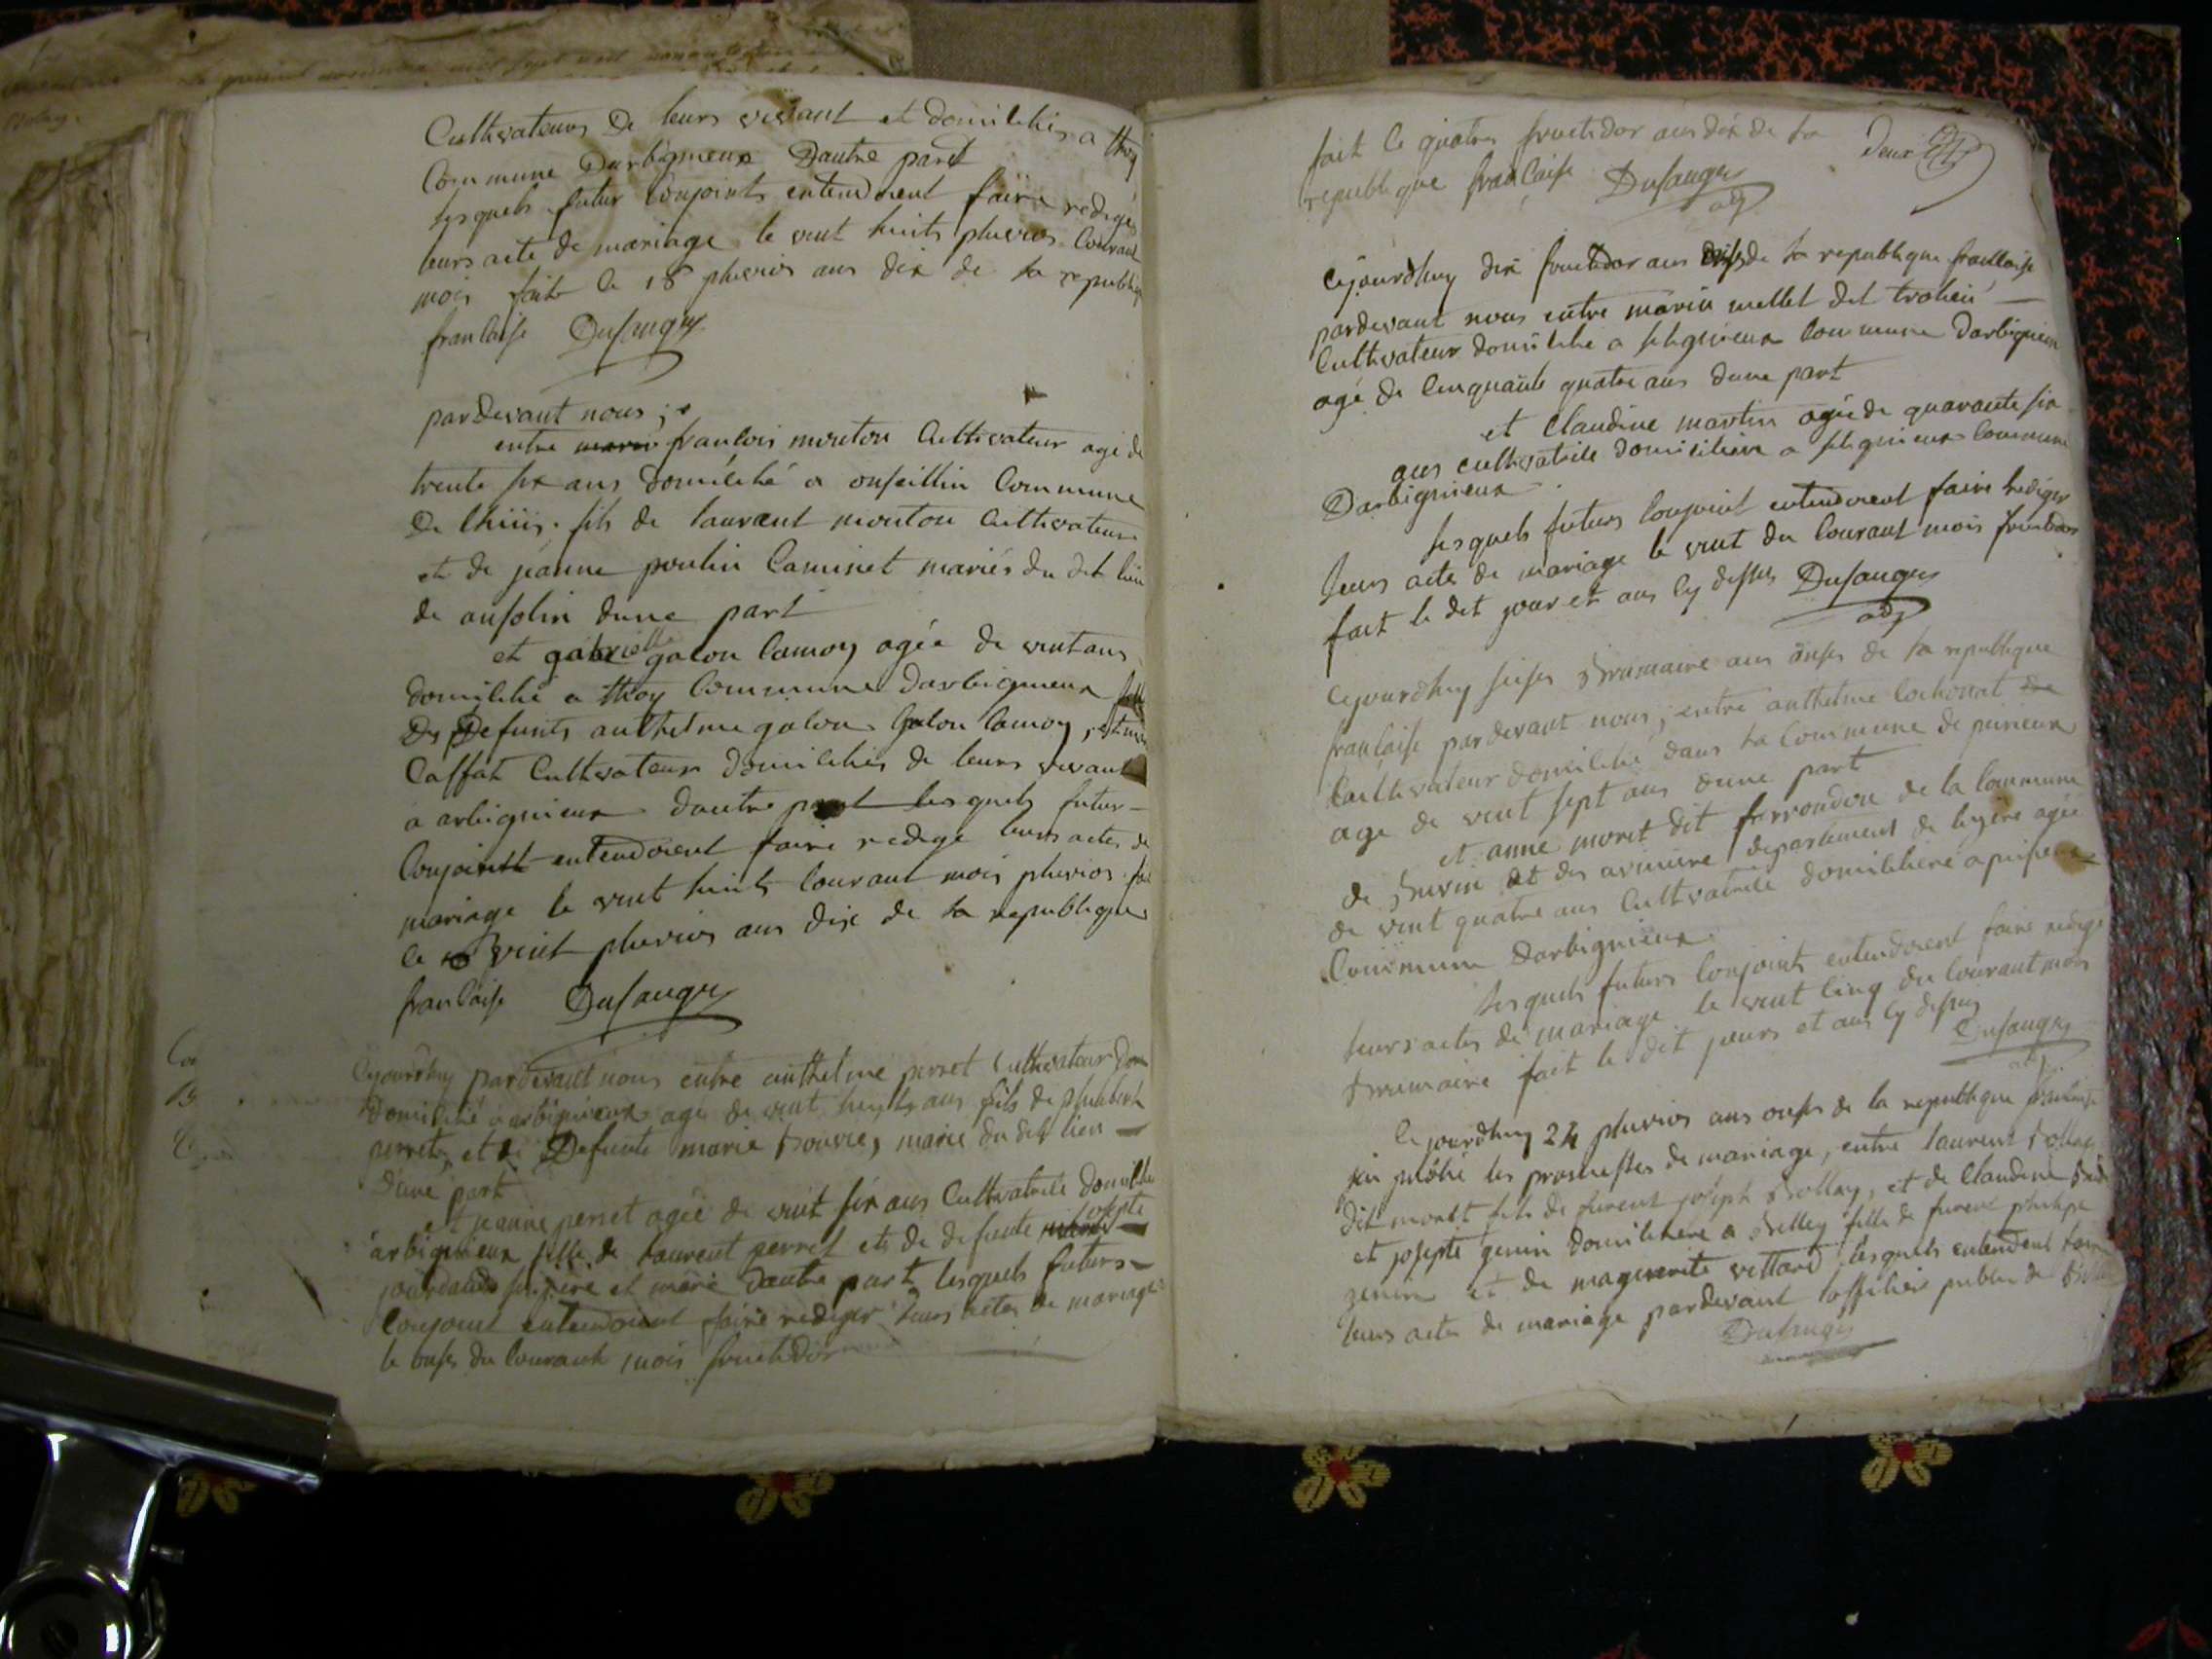 Cultivateurs De leurs vivant et domiciliés a thoy
Commune Darbignieux Dautre part
lesquels futur Conjoints entendoient faire rediger
leurs acte de mariage le vint huits pluvios Courant
mois fait le 18 pluvios ans dix de la republique
francaise Dufauget
pardevant nous ;
entre francois mouton Cultivateur agé de
trente six ans domicilié a onseillin Commune
De lhuis. fils de laurent mouton Cultivateur
et de jeanne poulin Caminet mariés du dit lieu
de ansolin dune part
et gabrielle galon Camoy agée de vint ans
domicilié a thoy Commune Darbignieux fille
Des Defunts anthelme galon Galon Camoy
Caffat Cultivateurs domiciliés de leurs vivant
a arbignieux dautre part lesquels futur
Conjoints entendoient faire redige leurs actes de
mariage le vint huits Courant mois pluvios fait
le vint pluvios ans dix de la republique
francaise Dufauget
Cejourdhuy pardevant nous entre anthelme perret Cultivateur
Domicilié a arbignieux agé de vint ans fils de philibert
perret, et de Defunte marie mariés du dit lieu
dune part
et jeanne perret agée de vint six ans Cultivatrice
arbignieux fille de laurent perret et de defunte josepte
pere et mere dautre part lesquels futurs
Conjoint entendoient faire rediger leurs actes de mariage
le onses du Courant mois fructidor
fait le quatres fructidor ans dix de la Deux
republique francaise Dufauget
adj
Cejourdhuy dix fructidor ans de la republique francaise
pardevant nous entre marin mellet dit
Cultivateur domicilié a selignieux Commune Darbignieux
agé de Cinquante quatre ans dune part
et Claudine martin agée de quarante six
ans cultivatrice domiciliere a selignieux Commune
Darbignieux
lesquels futurs Conjoint entendoient faire rediger
leurs actes de mariage le vint du Courant mois fructidor
fait le dit jour et ans cy dessus Dufauget
adj
Cejourdhuy seises Brumaire ans onses de la republique
francaise pardevant nous ; entre anthelme Cochonat
Cultivateur domicilié dans la Commune de peirieux
age de vint sept ans dune part
et anne moret dit de la Commune
de departement de
de vint quatre ans Cultivatrice domiciliere a
Commune Darbignieux
lesquels futurs Conjoints entendoient faire redige
leurs actes de mariage le vint cinq du Courant mois
Brumaire fait le dit jours et ans cy dessus
Dufauget
adj
Cejourdhuy 24 pluvios ans onses de la republique francaise
jai publié les promesses de mariage, entre laurent Bollay
dit moret fils de furent joseph Bollay, et de Claudine
et josepte genin domiciliere a Belley fille de furent philipe
genin et de maguerite vettard lesquels entendent faire
leurs actes de mariage pardevant loffiliés public de
Dufauget